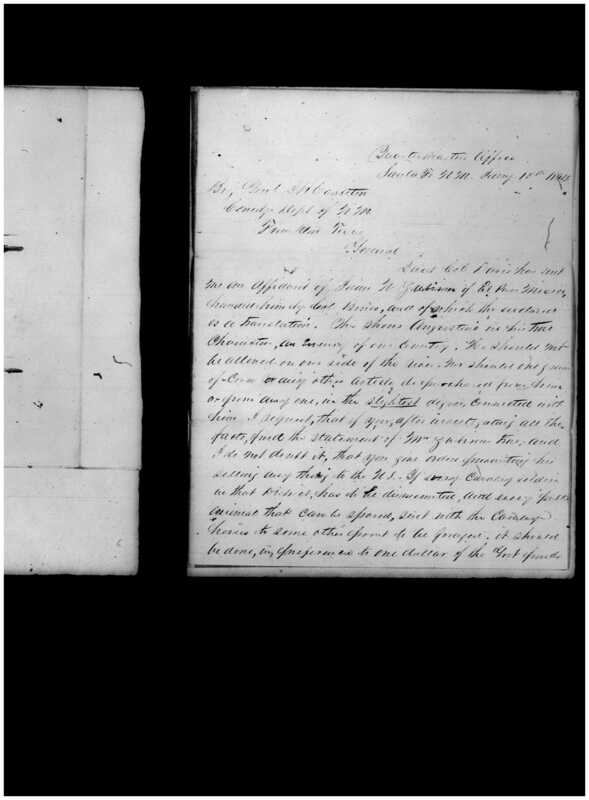 Quartermasters Office
Santa Fe N.M. Jany 10th
Br, Genl Carleton
Comdg Dept of N.M.
Franklin Texas
General
Lieut Col has sent
me an Affidavit of Juan N Zubiran of El Paso Mexico,
handed him by Col and of which the enclosed
is a translation. This shows in his true
Character, an Enemy of our Country. He should not
be allowed on our side of the river. Nor should one grain
of Corn or any other article be purchased from him
or from any one, in the slightest degree, Connected with
him I request, that if you, after investigating all the
facts, find the statement of Mr Zubiran true, and
I do not doubt it, that you give orders preventing his
selling any thing to the U.S. If every Cavalry soldier
in that District, has to be dismounted, and every public
animal that can be spared, sent with the Cavalry
horses to some other point to be foraged, it should
be done, in preference to one dollar of the Govt funds